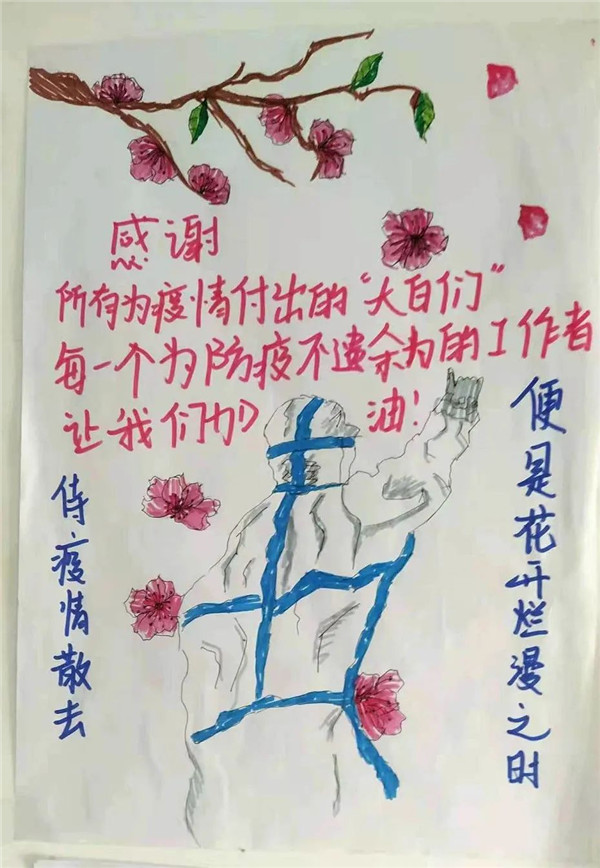 感谢
所有为疫情付出的“大白们”
每一个为防疫不遗余为的工作者
让我们加油！
侍疫情散去
便是花开烂漫之时